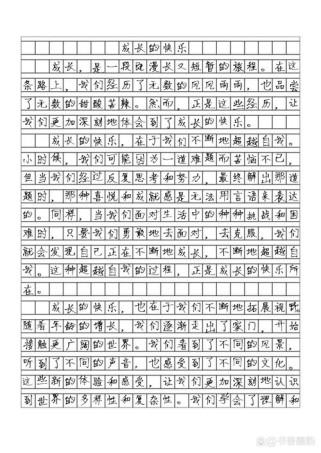 成长的快乐
成长，是一段既漫长又短暂的旅程。在这
条路上，我们经历了无数的风风雨雨，也品尝
了无数的甜酸苦辣。然而，正是这些经历，让
我们更加深刻地体会到了成长的快乐。
成长的快乐，在于我们不断地超越自我。
小时候，我们可能因为一道难题而苦恼不已，
但当我们经过反复思考和努力，最终解出那道
题时，那种喜悦和成就感是无法用言语来表达
的。同样，当我们面对生活中的种种挑战和困
难时，只要我们勇敢地去面对，去克服，我们
就会发现自己正在不断地成长，不断地超越自
我。这种超越自我的过程，正是成长的快乐所
在。
成长的快乐，也在于我们不断地拓展视野。
随着年龄的增长，我们逐渐走出了家门，开始
接触更广阔的世界。我们看到了不同的风景，
听到了不同的声音，也感受到了不同的文化。
这些新的体验和感受，让我们更加深刻地认识
到世界的多样性和复杂性。我们学会了理解和